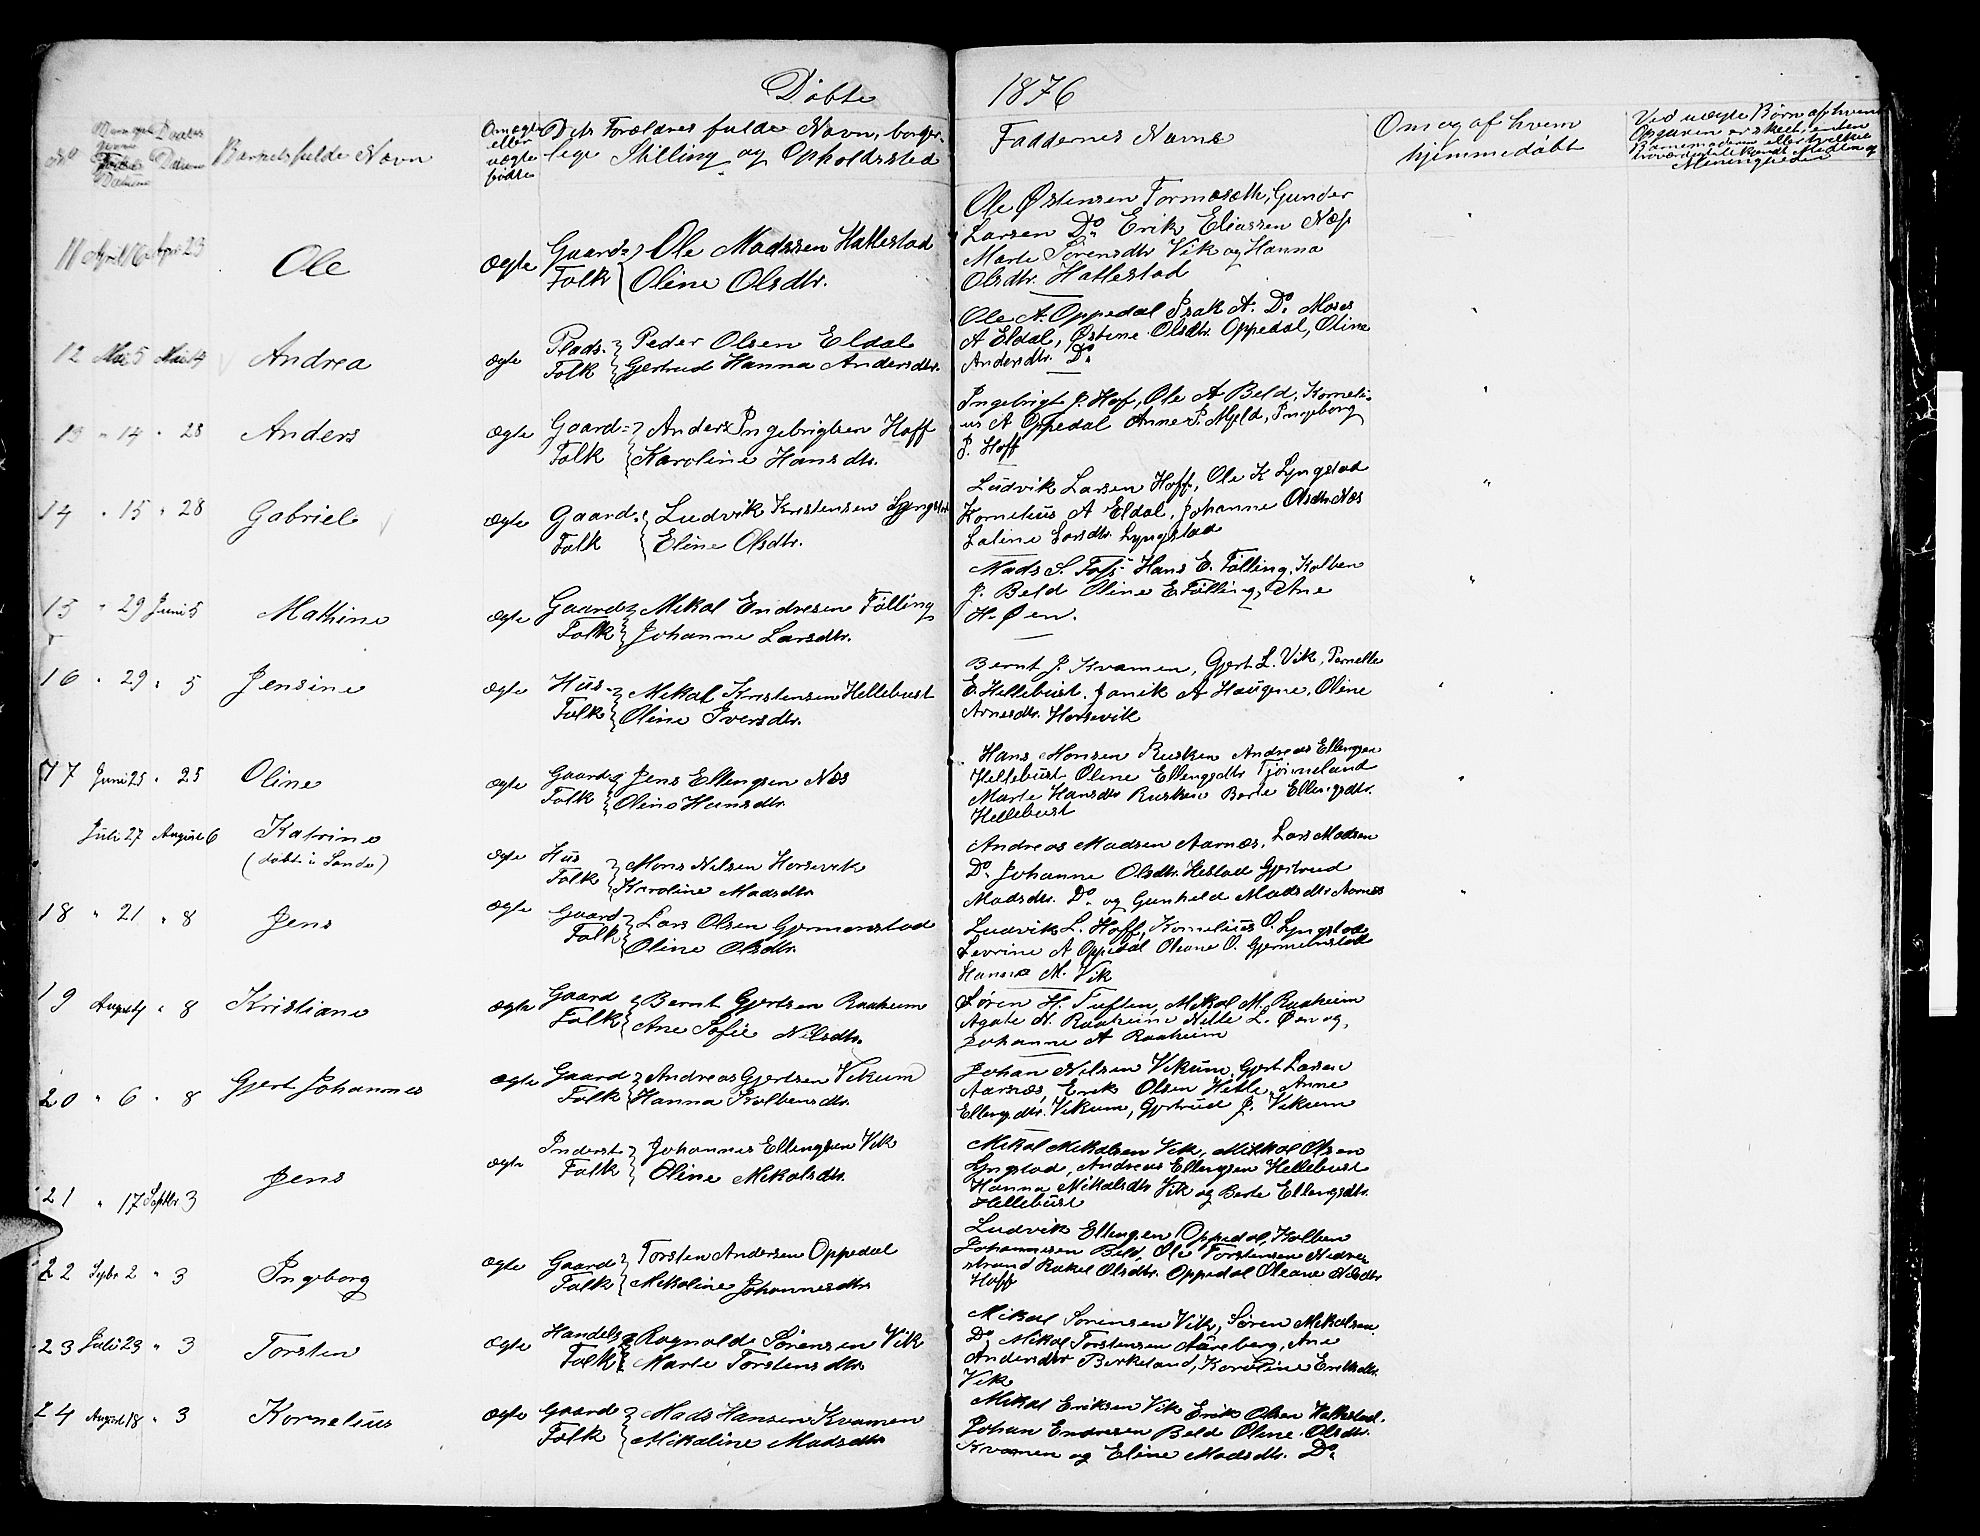 Døbte 1876
No
Barnets fulde Navn
Om ægte eller uægte fødte
Dets Forældres fulde Navn, borger-
lige Stilling og Opholdssted
Faddernes Navne
Om og af hvem
hjemmedøbt
Ved uægte Børn af hvem
Opgaven er skeet, enten
Barnemoderen eller tvende
troværdige bekjendt Medlem af
Menigheden
11 April 16 April 23 Ole ægte Gaard- Folk Ole Madssen Hatlestad
Oline Olsdtr.
Ole Østensen Tormæseth, Gunder
Larsen Do. Erik Eliassen Næs
Marte Sørensdtr Vik og Hanna
Olsdtr. Hatlestad
12 Mai 5 Mai 14 Andrea ægte Plads- Folk Peder Olsen Eldal
Gjertrud Hanna Andersdtr.
Ole A. Oppedal Isak A. Do. Moses
A Eldal, Østine Olsdtr. Oppedal, Oline
Andersdtr. Do
13 " 14 " 28 Anders ægte Gaard- Folk Anders Ingebrigtsen Hoff
Karoline Hansdtr.
Ingebrigt J. Hof, Ole A Beld, Korneli-
us A Oppedal Anne P. Mjeld, Ingeborg
J. Hoff
14 " 15 " 28 Gabriel ægte Gaard- Folk Ludvik Kristensen Lyngstad
Eline Olsdtr.
Ludvik Larsen Hoff, Ole K Lyngstad
Kornelius A Eldal, Johanne Olsdtr Næs
Laline Larsdtr. Lyngstad
15 " 29 Juni 5 Mathine ægte Gaard- Folk Mikal Endresen Fölling
Johanne Larsdtr.
Mads S. Foss Hans E. Fölling, Kolben
J. Beld Oline E. Fölling, Ane
H. Øen.
16 " 29 " 5 Jensine ægte Hus- Folk Mikal Kristensen Hellebust
Oline Iversdtr.
Bernt J. Kvamen, Gjert L. Vik, Pernelle
E. Hellebust. Janik A Haugene, Oline
Arnesdtr. Horsevik
17 Juni 25 " 25 Oline ægte Gaard- Folk Jens Ellingsen Næs
Oline Hansdtr.
Hans Monsen Rusken Andreas Ellingsen
Hellebust Oline Ellingsdtr Tjönneland
Marte Hansdtr Rusken Berte Ellingsdtr.
Hellebust
Juli 27 August 6 Katrine
(döbt i Sande) ægte Hus Folk Mons Nilsen Horsevik
Karoline Madsdtr
Andreas Madsen Aarnæs, Lars Madsen
Do. Johanne Olsdtr. Hestad Gjertrud
Madsdtr. Do og Gunhild Madsdtr Aarnæs
18 " 21 " 8 Jens ægte Gaard- Folk Lars Olsen Gjermunstad
Oline Olsdtr.
Ludvik L. Hoff, Kornelius O. Lyngstad
Sevrine A Oppedal Oleane O. Gjermunstad
Hanna M. Vik
19 August " 8 Kristiane ægte Gaard Folk Bernt Gjertsen Raaheim
Ane Sofie Nilsdtr.
Sören H. Tuften, Mikal M. Raaheim
Agate N. Raaheim Nille L. Øen og,
Johanne A Raaheim
20 " 6 " 8 Gjert Johannes ægte Gaard Folk Andreas Gjertsen Vikum
Hanna Kolbensdtr.
Johan Nilsen Vikum, Gjert Larsen
Aarnæs, Erik Olsen Hitle, Anne
Ellingsdtr. Vikum, Gjertrud J. Vikum
21 " 17 Septbr 3 Jens ægte Inderst- Folk Johannes Ellingsen Vik
Oline Mikalsdtr.
Mikal Mikalsen Vik, Mikkal Olsen
Lyngstad, Andreas Ellingsen Hellebust
Hanna Mikalsdtr Vik og Berte Ellingsdtr.
Hellebust
22 2 " 3 Ingeborg ægte Gaard Folk Torsten Andersen Oppedal
Mikaline Johannesdtr.
Ludvik Ellingsen Oppedal, Kolben
Johannesen Beld, Ole Torstensen Nedre
strand Rakel Olsdtr. Oppedal Oleane Nilsdtr
Hoff
23 Juli 23 " 3 Torsten ægte Handels Folk Ragnalde Sörensen Vik
Marte Torstensdtr.
Mikal Sørensen Vik, Søren Mikalsen
Do, Mikal Torstensen Aareberg, Ane
Andersdtr Birkeland, Karoline Eriksdtr.
Vik
24 August 18 " 3 Kornelius ægte Gaard Folk Mads Hansen Kvamen
Mikaline Madsdtr
Mikal Eriksen Vik Erik Olsen Hatlestad.
Johan Endresen Beld Oline Olsdtr.
Kvamen og Eline Madsdtr. Do.